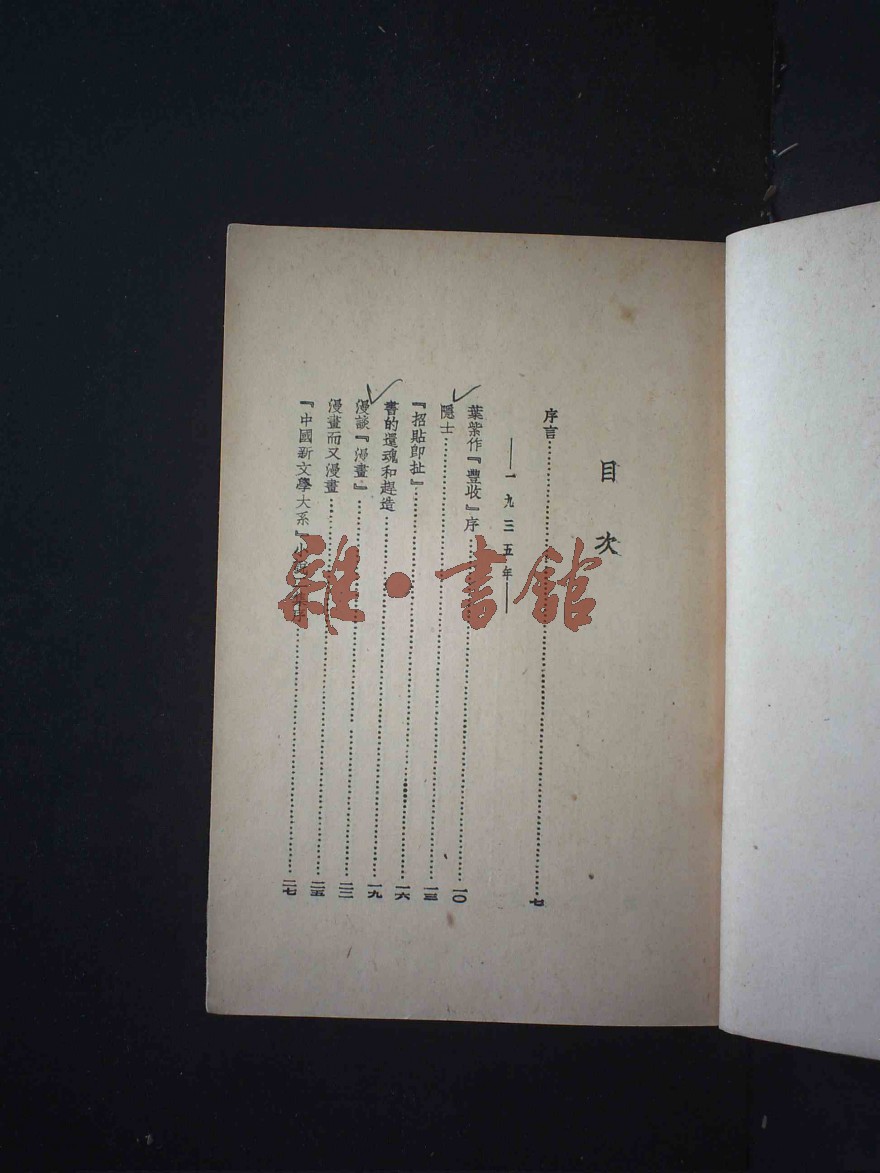 目次
序言⋯⋯七
——一九三五年——
葉紫作『豐收』序⋯⋯一〇
隱士⋯⋯一三
『招貼即扯』⋯⋯一六
書的還魂和趕造⋯⋯一九
漫談『漫畫』⋯⋯二二
漫畫而又漫畫⋯⋯二五
『中國新文學大系』小 序⋯⋯二七
雜·書館